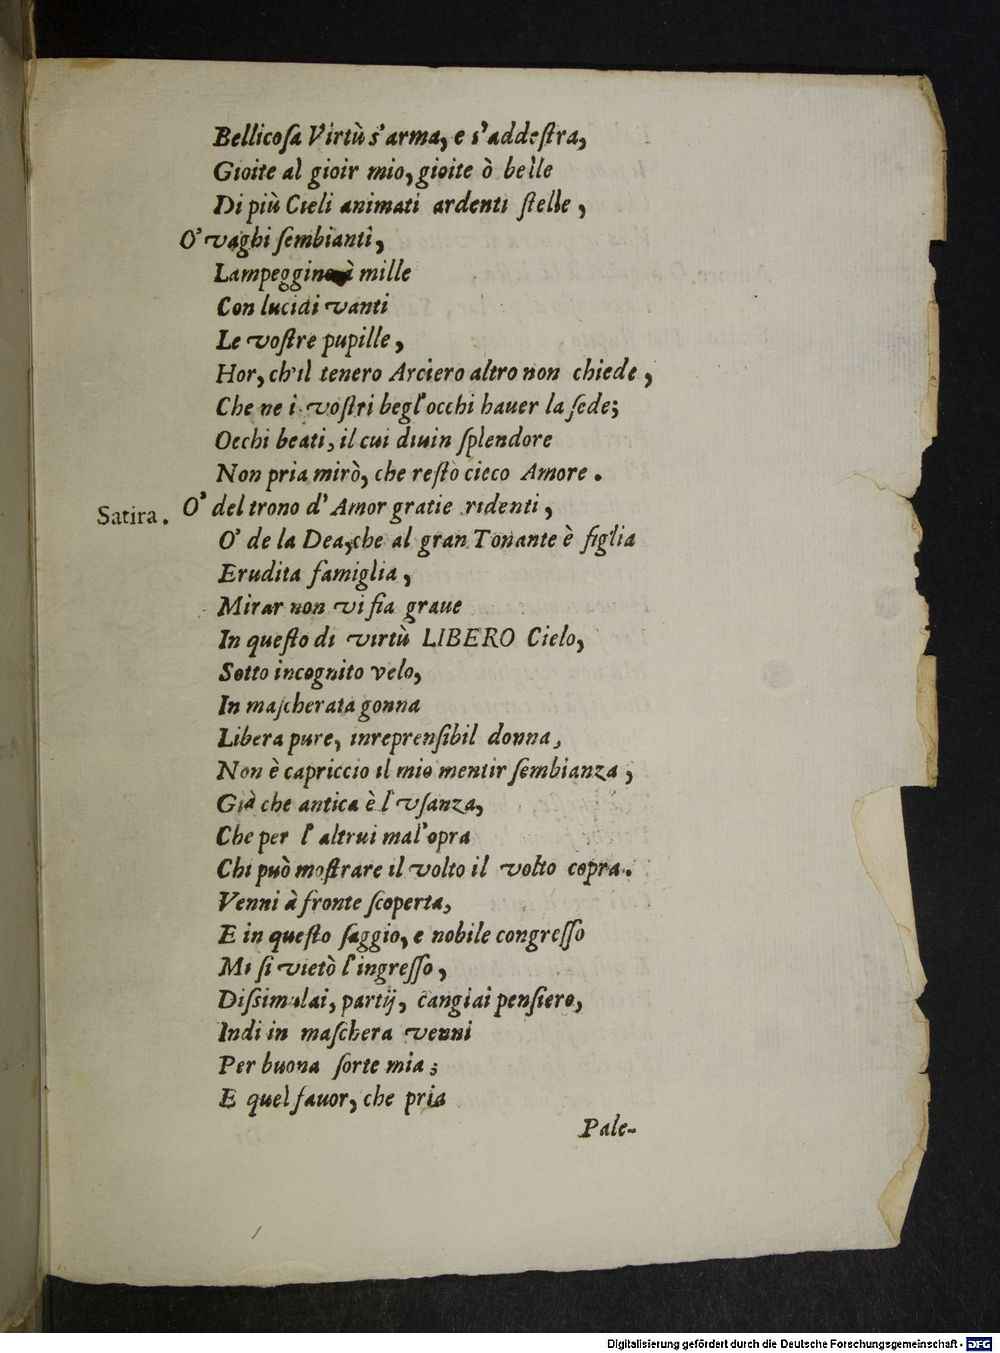 Bellicoſa Virtù s'arma, e s'addeſtra,
Gioite al gioir mio, gioite ò belle
Di più Cieli animati ardenti ſtelle,
O' vaghi ſembianti,
Lampeggino à mille
Con lucidi vanti
Le voſtre pupille,
Hor, ch'il tenero Arciero altro non chiede,
Che ne i voſtri begl'occhi hauer la ſede;
Occhi beati, il cui diuin ſplendore
Non pria mirò, che reſtò cieco Amore.
Satira. O' del trono d'Amor gratie ridenti,
O' de la Dea, che al gran Tonante è figlia
Erudita famiglia,
Mirar non vi ſia graue
In queſto di virtù LIBERO Cielo,
Sotto incognito velo,
In maſcherata gonna
Libera pure, inreprenſibil donna,
Non è capriccio il mio mentir ſembianza,
Già che antica è l'vſanza,
Che per l'altrui mal'opra
Chi può moſtrare il volto il volto copra.
Venni à fronte ſcoperta,
E in queſto ſaggio, e nobile congreſſo
Mi ſi vietò l'ingreſſo,
Diſsimulai, partij, cangiai penſiero,
Indi in maſchera venni
Per buona ſorte mia;
E quel fauor, che pria
Pale-
Digitalisierung gefördert durch die Deutsche Forschungsgemeinschaft - DFG